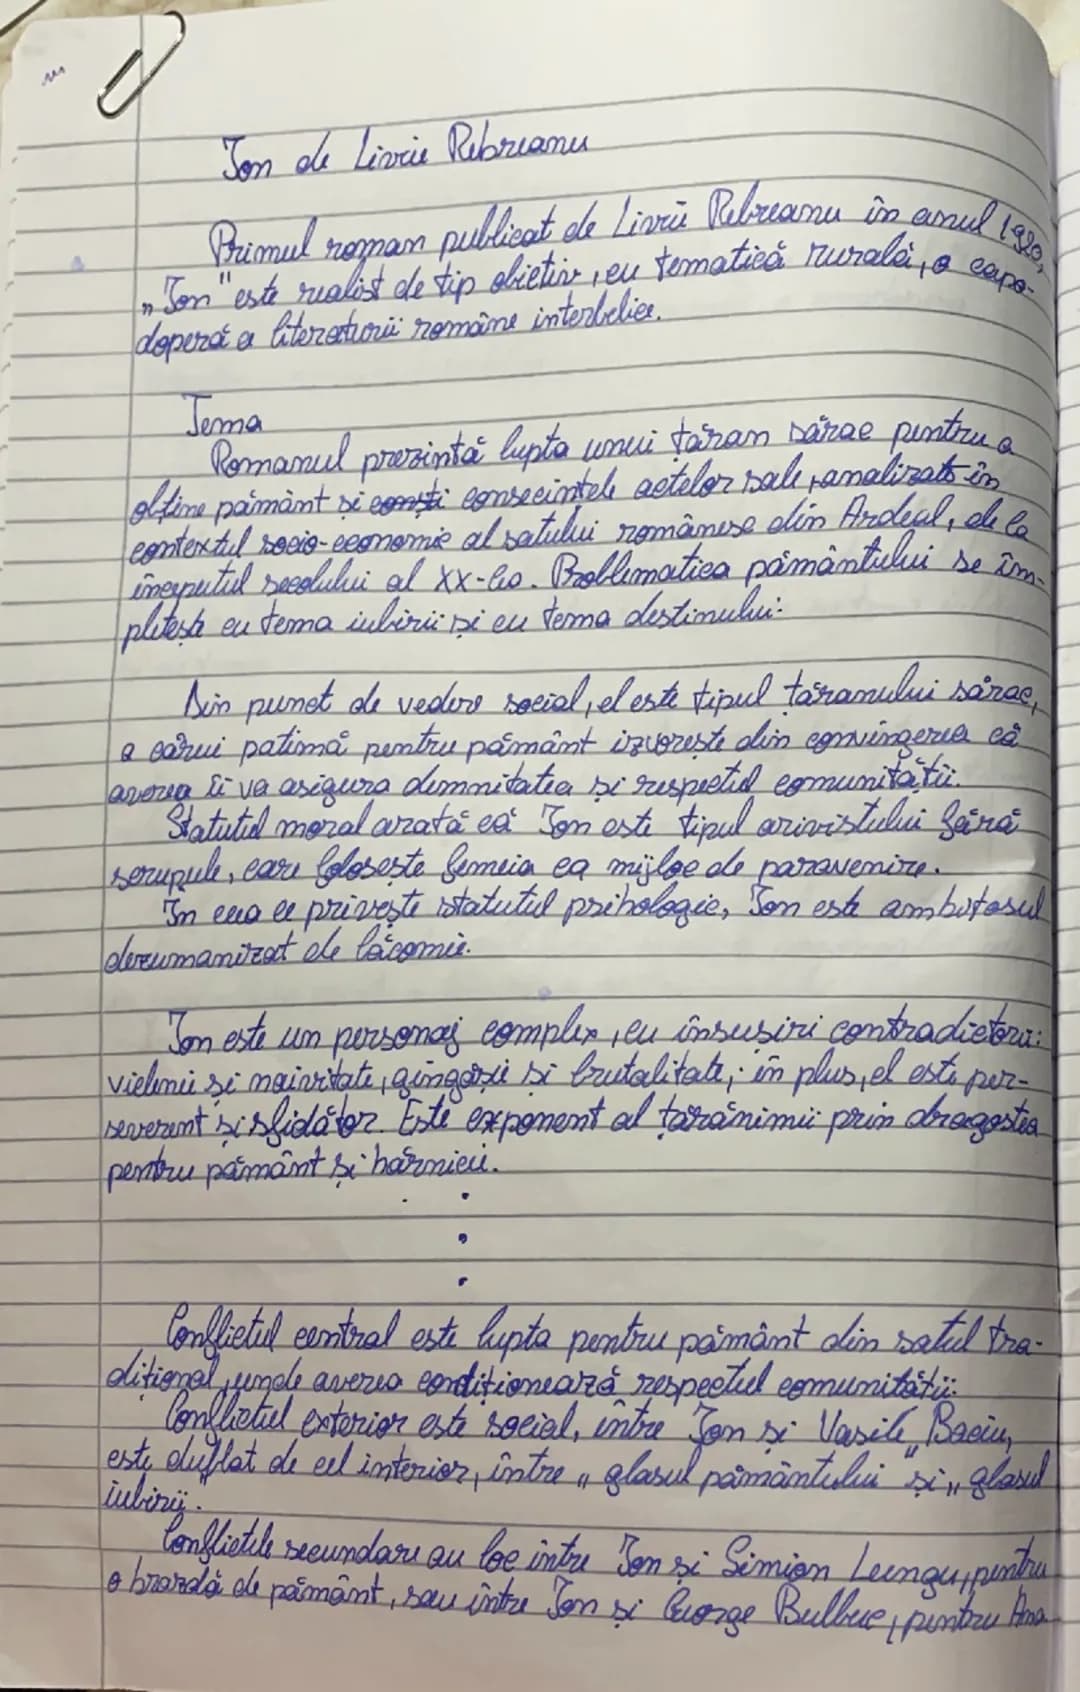 Ion de Liviu Rebreanu
Primul roman publicat de Liviu Rebreanu în anul 1920,
„Ion" este realist de tip obiectiv, cu tematică rurală, o capo-
doperă a literaturii române interbelice.
Tema
Romanul prezintă lupta unui țăran sărac pentru a
obține pământ și consecințele actelor sale, analizate în
contextul socio-economic al satului românesc din Ardeal, de la
începutul secolului al XX-lea. Problematica pământului se îm-
pletește cu tema iubirii și cu tema destinului.
Din punct de vedere social, el este tipul țăranului sărac,
a cărui patimă pentru pământ izvorește din convingerea că
averea îi va asigura demnitatea și respectul comunității.
Statutul moral arată că Ion este tipul arivistului fără
scrupule, care folosește femeia ca mijloc de paravenire.
În ceea ce privește statutul psihologic, Ion este ambițosul
dezumanizat de lăcomie.
Ion este un personaj complex, cu însușiri contradictorii:
viclenii și naivitate, gingășie și brutalitate; în plus, el este per-
severent și sfidător. Este exponent al țărănimii prin dragostea
pentru pământ și hărnicii.
Conflictul central este lupta pentru pământ din satul tra-
dițional, unde averea condiționează respectul comunității.
Conflictul exterior este social, între Ion și Vasile Baciu,
este duflat de cel interior, între „glasul pământului" și „glasul
iubirii".
Conflictele secundare au loc între Ion și Simion Lungu, pentru
o brazdă de pământ, sau între Ion și George Bulbuc, pentru Ana